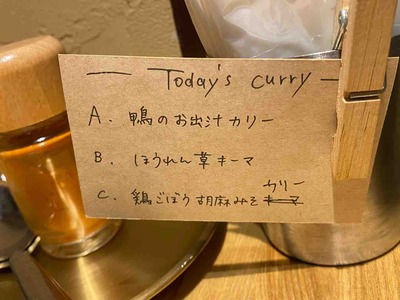 Today's curry
A. 鴨のお出汁カリー
B. ほうれん草キーマ
C. 鶏ごぼう胡麻みそカリー